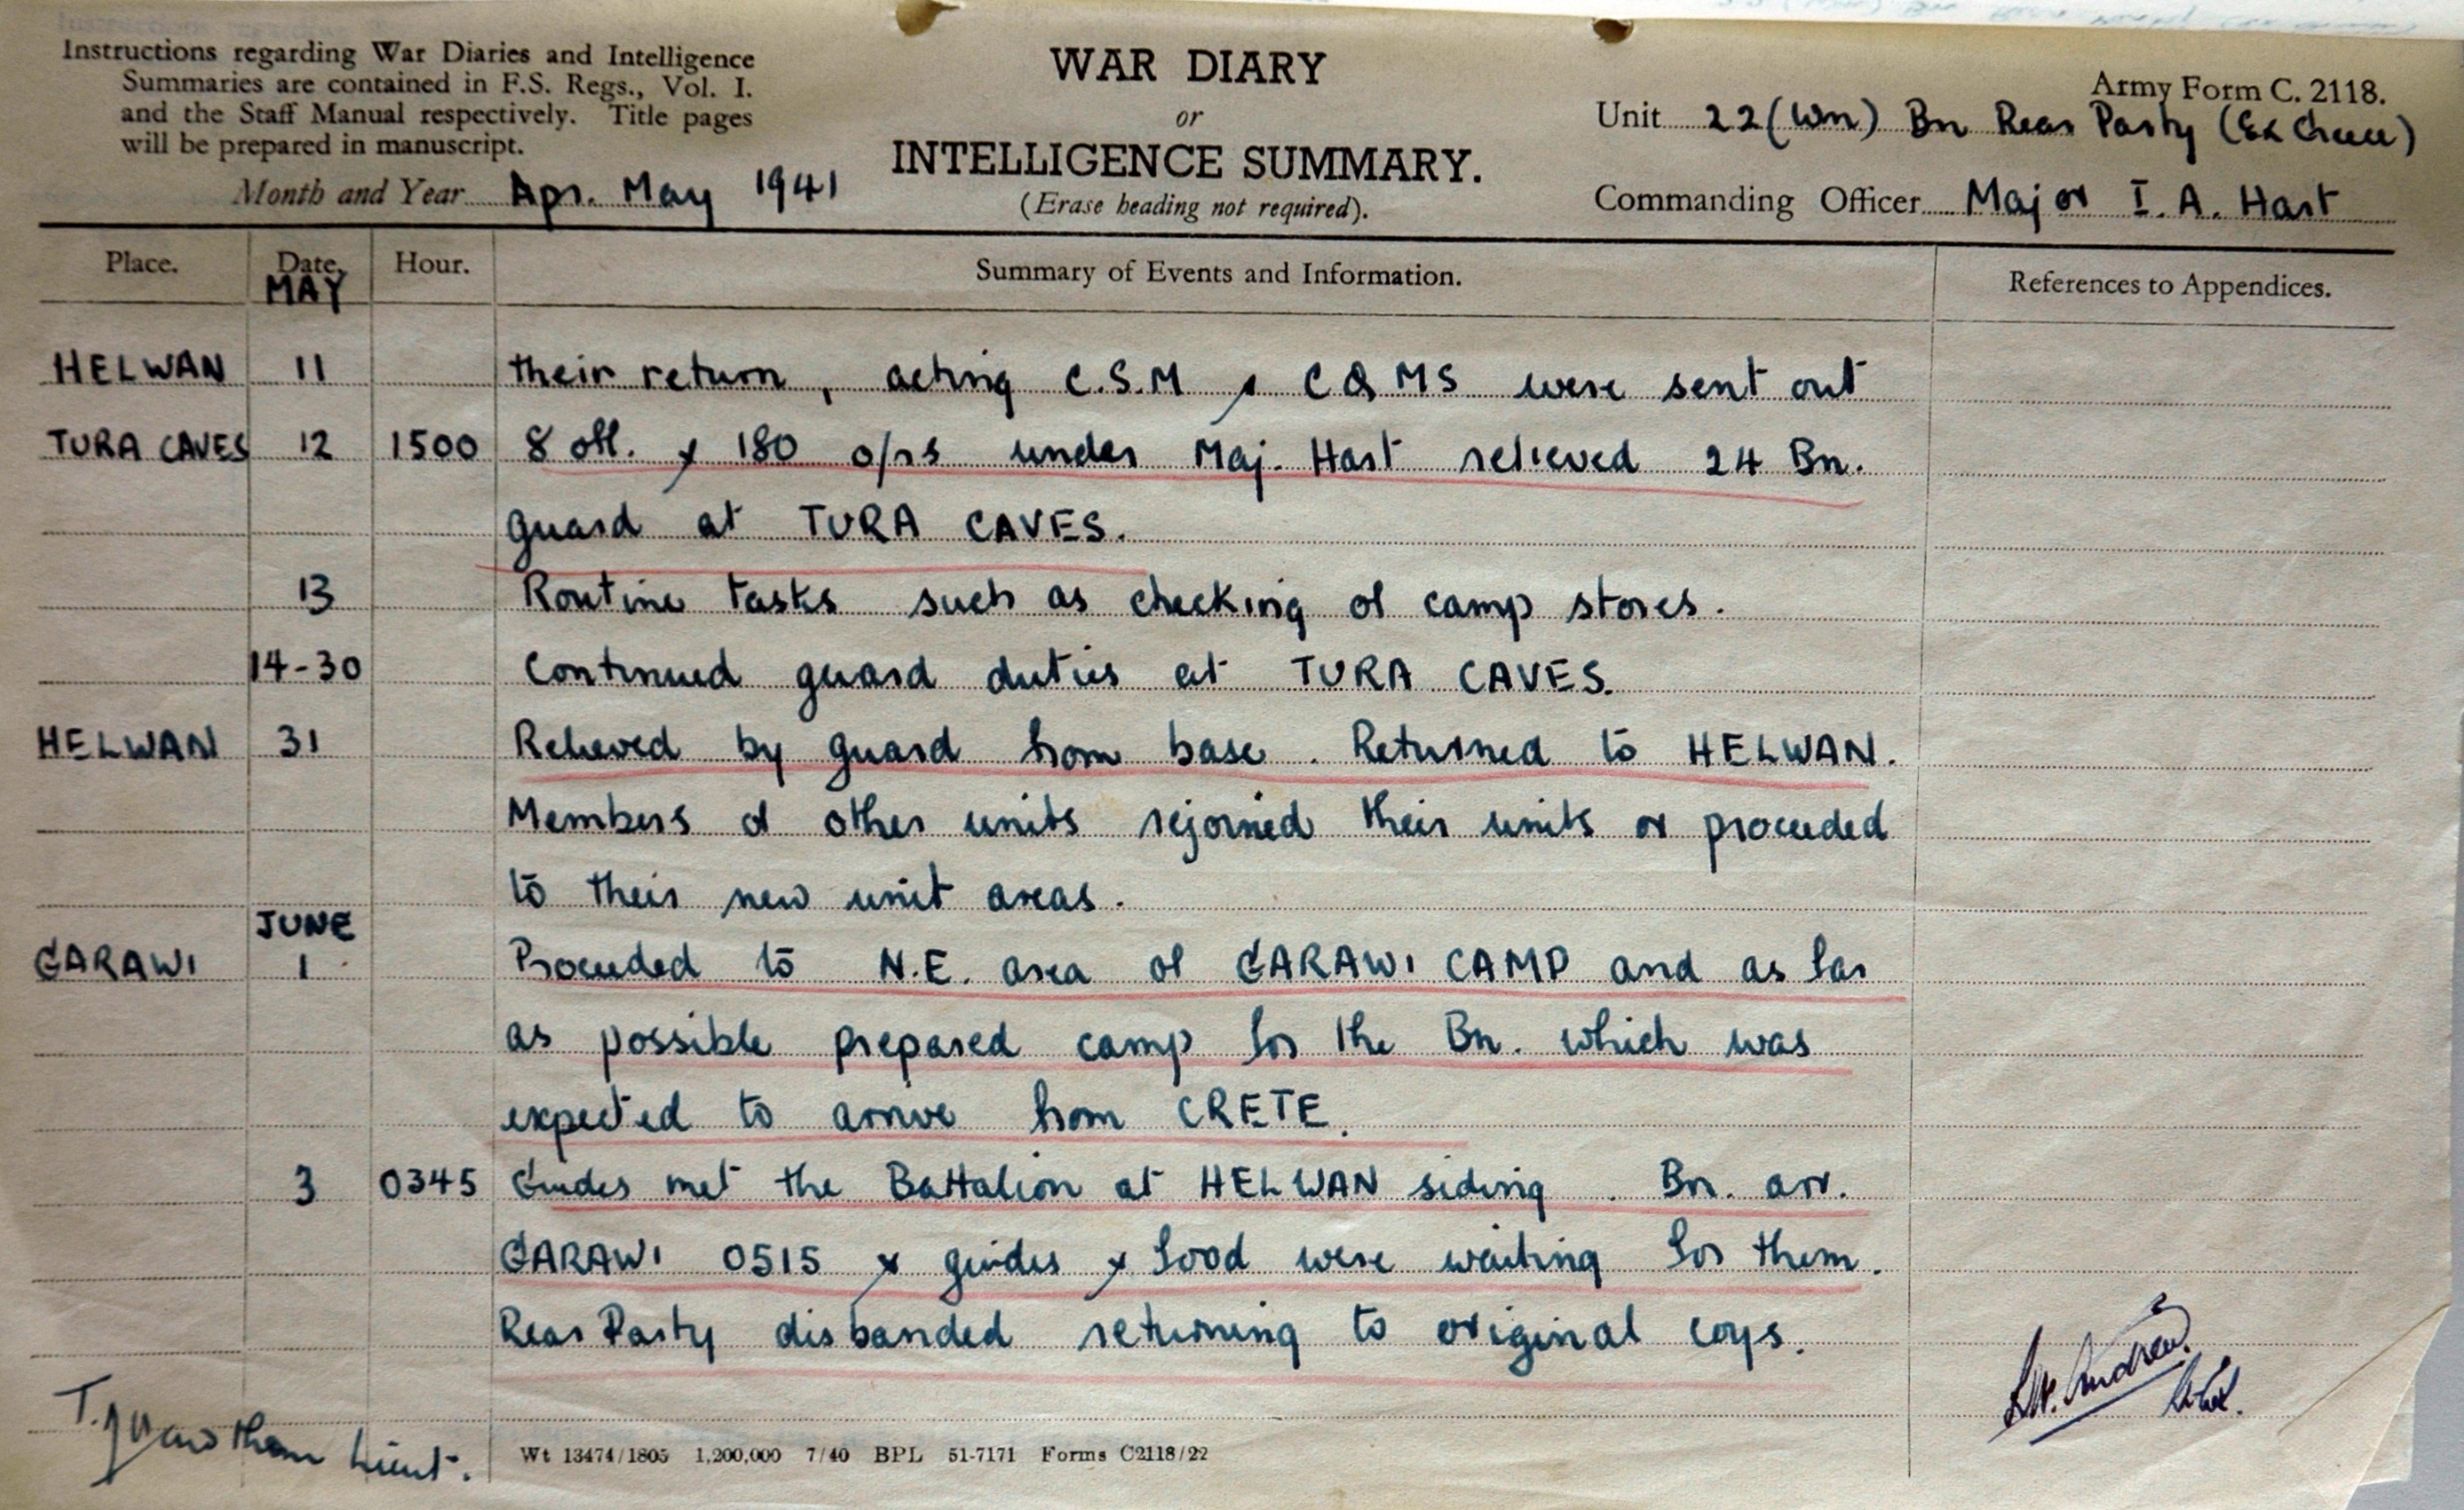 Instructions regarding War Diaries and Intelligence
Summaries are contained in F.S. Regs., Vol. I.
and the Staff Manual respectively. Title pages
will be prepared in manuscript.
Month and Year Apr. May 1941
WAR DIARY
or
INTELLIGENCE SUMMARY.
(Erase heading not required).
Army Form C. 2118.
Unit 22 (Wn) Bn Rear Party (Ex Greece)
Commanding Officer Major I. A. Hart
Place. Date. Hour. Summary of Events and Information. References to Appendices.
MAY
HELWAN 11 their return, acting C.S.M & CQMS were sent out
TURA CAVES 12 1500 8 off. & 180 o/rs under Maj. Hart relieved 24 Bn.
guard at TURA CAVES.
13 Routine tasks such as checking of camp stores.
14-30 Continued guard duties at TURA CAVES.
HELWAN 31 Relieved by guard from base. Returned to HELWAN.
Members of other units rejoined their units or proceeded
to their new unit areas.
JUNE
GARAWI 1 Proceeded to N.E. area of GARAWI CAMP and as far
as possible prepared camp for the Bn. which was
expected to arrive from CRETE.
3 0345 Guides met the Battalion at HELWAN siding. Bn. arr.
GARAWI 0515 & guides & food were waiting for them.
Rear Party disbanded returning to original coys.
T. Lieut.
Andrew
Wt 13474/1805 1,200,000 7/40 BPL 51-7171 Forms C2118/22